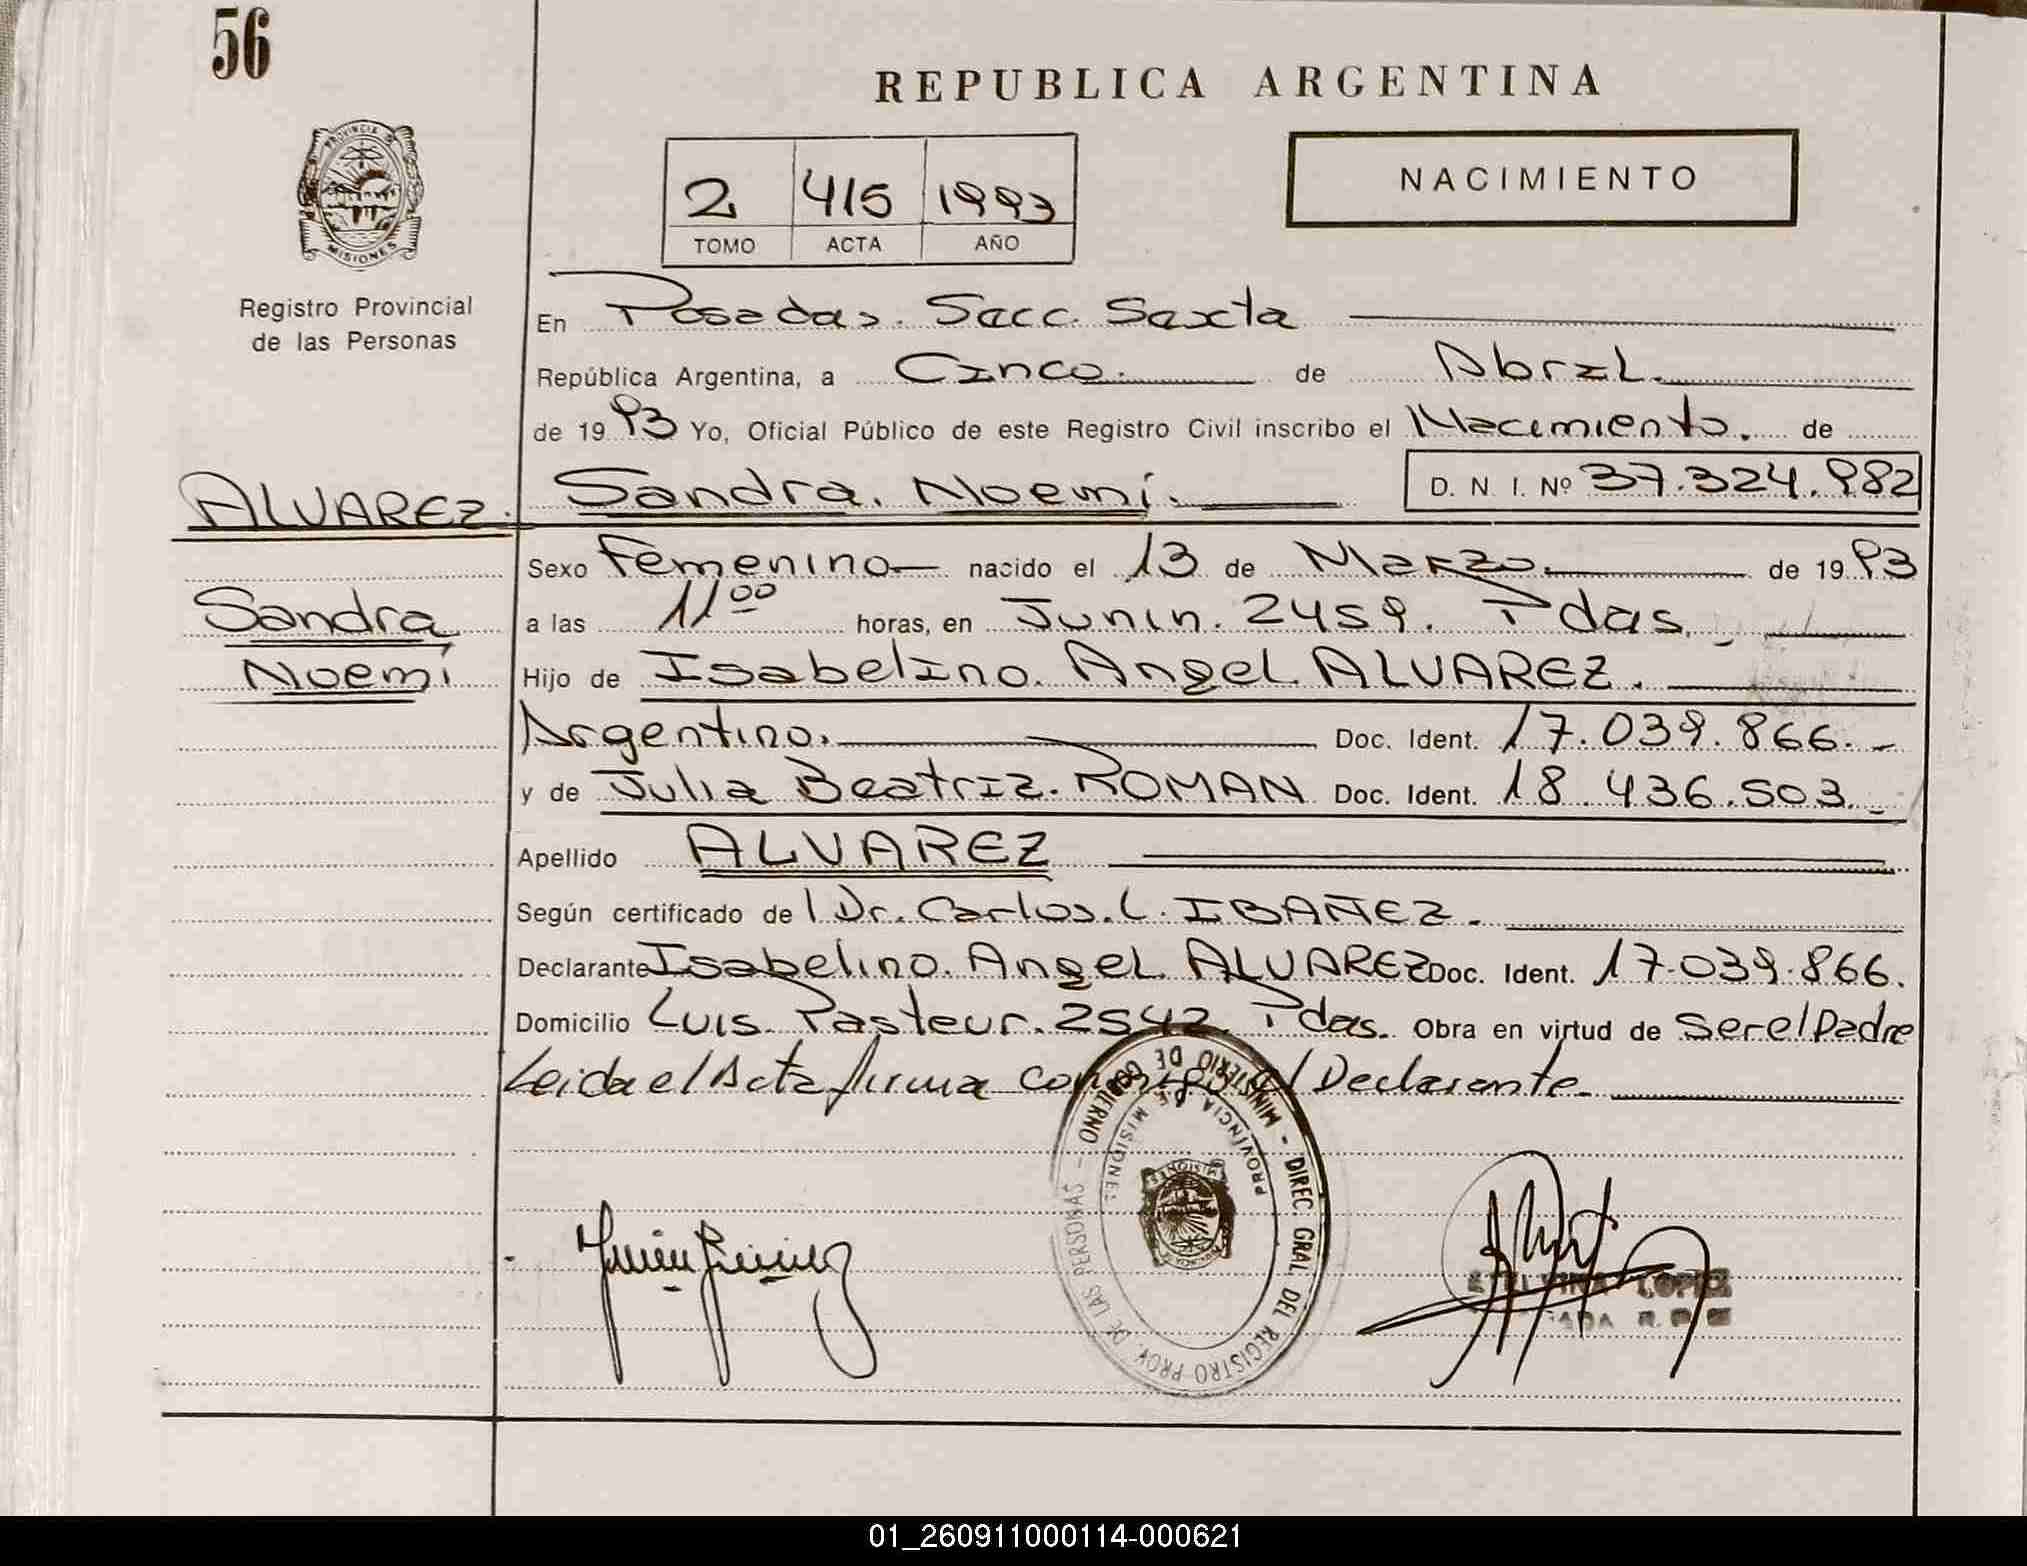 56
REPUBLICA ARGENTINA
PROVINCIA DE
MISIONES
Registro Provincial
de las Personas
2 415 1993
TOMO ACTA AÑO
NACIMIENTO
En Posadas. Secc. Sexta
República Argentina, a Cinco. de Abril.
de 1993 Yo, Oficial Público de este Registro Civil inscribo el Nacimiento. de
ALVAREZ. Sandra. Noemí. D. N. I. Nº 37.324.982
Sexo Femenino nacido el 13 de Marzo. de 1993
Sandra a las 11⁰⁰ horas, en Junin. 2459. Pdas.
Noemí Hijo de Isabelino. Angel. ALVAREZ.
Argentino. Doc. Ident. 17.039.866.
y de Julia Beatriz. ROMAN Doc. Ident. 18.436.503.
Apellido ALVAREZ
Según certificado de Dr. Carlos. L. IBAÑEZ.
Declarante Isabelino. Angel. ALVAREZ Doc. Ident. 17.039.866.
Domicilio Luis. Pasteur. 2542. Pdas. Obra en virtud de Ser el Padre
Leida el Acta firma conmigo el Declarante.
MINISTERIO DE GOBIERNO - DIREC. GRAL. DEL REGISTRO PROV. DE LAS PERSONAS -
PROVINCIA DE MISIONES
LOPEZ
01_260911000114-000621